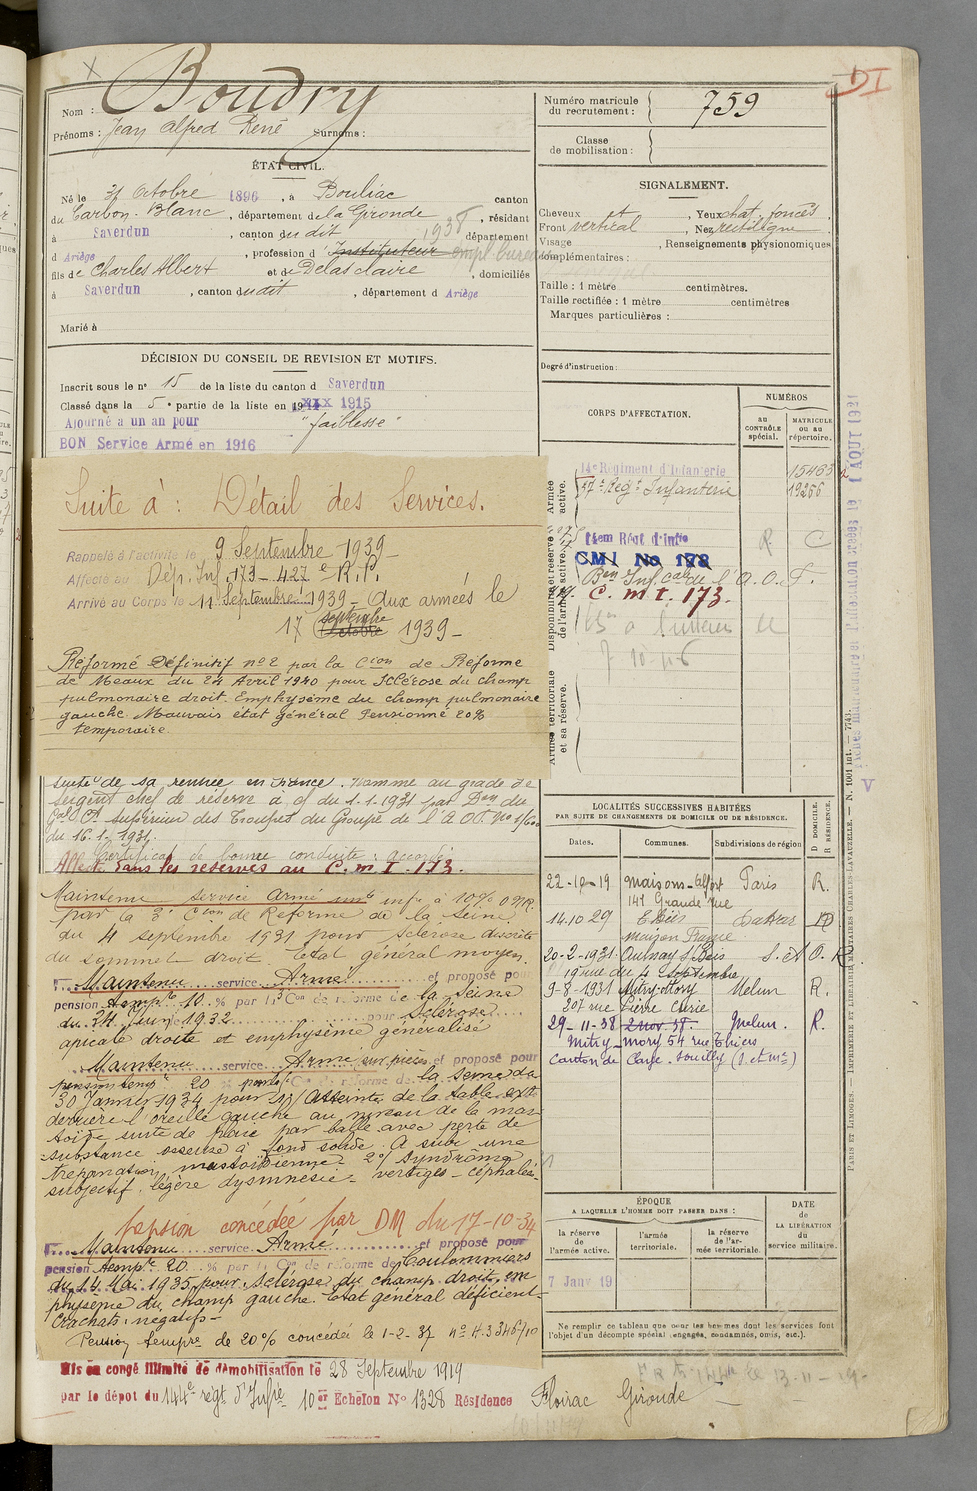 Boudry
Nom :
Prénoms : Jean Alfred René Surnoms :
ÉTAT CIVIL.
Né le 31 Octobre 1896, à Bouliac canton
du Carbon-Blanc, département de la Gironde, résidant
à Saverdun, canton dudit 1938 département
d Ariège, profession d'Instituteur empl. bureau
fils de Charles Albert et de Delas claire, domiciliés
à Saverdun, canton dudit, département d Ariège
Marié à
DÉCISION DU CONSEIL DE REVISION ET MOTIFS.
Inscrit sous le n° 15 de la liste du canton d Saverdun
Classé dans la 5e partie de la liste en 1915
Ajourné a un an pour "faiblesse"
BON Service Armé en 1916
Suite à : Détail des Services.
Rappelé à l'activité le 9 Septembre 1939 -
Affecté au Dép. Inf. 173 - 427e R.P.
Arrivé au Corps le 11 Septembre 1939 - Aux armées le
17 septembre 1939 -
Réformé Définitif n°2 par la Cion de Réforme
de Meaux du 24 Avril 1940 pour Sclérose du champ
pulmonaire droit. Emphysème du champ pulmonaire
gauche. Mauvais état général Pensionné 20%
temporaire.
suite de sa rentrée en France. Nommé au grade de
sergent chef de réserve à cf du 1.1.1931 par Don du
Gal Ct supérieur des Troupes du Groupe de l'A.O.F. No
du 16.1.1931.
Certificat de bonne conduite : accordé
Affecté dans les réserves au C.m.I. 173.
Maintenu service Armé inf à 10%
par la 3e Cion de Réforme de la Seine
du 4 septembre 1931 pour sclérose discrète
du sommet droit. Etat général moyen.
Maintenu service Armé et proposé pour
pension tempre 10 % par la Con de réforme de la Seine
du 24 Juin 1932 pour Sclérose
apicale droite et emphysème généralisé
Maintenu service Armé sur pièces et proposé pour
pension temp 20 % Con de réforme de la Seine du
30 Janvier 1934 pour 1°/ Atteinte de la table exte
derrière l'oreille gauche au niveau de la mas-
toïde suite de plaie par balle avec perte de
substance osseuse à fond solide. A subi une
trépanation mastoïdienne - 2°/ Syndrome
subjectif, légère dysmnésie - vertiges - céphalés-
pension concédée par DM du 17-10-34
Maintenu service Armé et proposé pour
pension tempre 20 % par la Con de réforme de Coulommiers
du 14 Mai 1935 pour sclérose du champ droit, em
physème du champ gauche. Etat général déficient-
Crachats négatifs -
Pension tempre de 20% concédée le 1-2-37
Mis en congé illimité de démobilisation le 28 Septembre 1919
par le dépot du 144e régt d'Infie 10er Echelon No 1328 Résidence Floirac Gironde
Numéro matricule
du recrutement : 759
Classe
de mobilisation :
SIGNALEMENT.
Cheveux, Yeux chat. foncés.
Front vertical, Nez rectiligne.
Visage, Renseignements physionomiques
complémentaires :
Taille : 1 mètre centimètres.
Taille rectifiée : 1 mètre centimètres
Marques particulières :
Degré d'instruction :
CORPS D'AFFECTATION.
NUMÉROS
au CONTRÔLE spécial.
MATRICULE OU AU répertoire.
Armée active.
14e Régiment d'Infanterie 15463
57e Regt Infanterie 19266
Disponibilité et réserve de l'armée active.
144em Rént d'Infie R C
CMI No 172
Bon Inf. cale de l'A.O.F.
C.m.t. 173.
Armée territoriale et sa réserve.
LOCALITÉS SUCCESSIVES HABITÉES
PAR SUITE DE CHANGEMENTS DE DOMICILE OU DE RÉSIDENCE.
Dates. Communes. Subdivisions de région D DOMICILE. R RÉSIDENCE.
22-12-19 Maisons-Alfort Paris R.
141 Grande rue
14.10.29 Thiès Dakar
maison France
20-2-1931. Aulnay s/Bois S. et O. R.
19 rue du 4 septembre
9-8-1931 Mitry-Mory Melun R.
207 rue Pierre Curie
29-11-38 2 nov 38. Melun. R.
Mitry-Mory 54 rue Thiers
Canton de Claye-Souilly (S. et M.)
ÉPOQUE
A LAQUELLE L'HOMME DOIT PASSER DANS :
la réserve de l'armée active.
l'armée territoriale.
la réserve de l'armée territoriale.
DATE de LA LIBÉRATION du service militaire.
7 Janv 19
Ne remplir ce tableau que pour les hommes dont les services font
l'objet d'un décompte spécial (engagés, condamnés, omis, etc.).
PARIS ET LIMOGES. — IMPRIMERIE ET LIBRAIRIE MILITAIRES CHARLES-LAVAUZELLE. — N. 1001 int. — 7743.